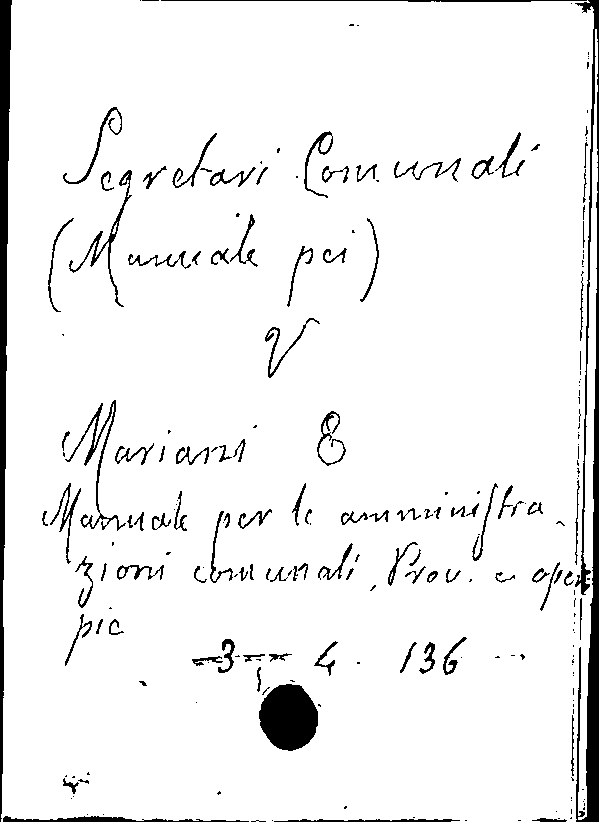 Segretari Comunali
(Manuale pei)
V
Mariani E
Manuale per le amministra-
zioni comunali, Prov. e opere
pie
3 4. 136